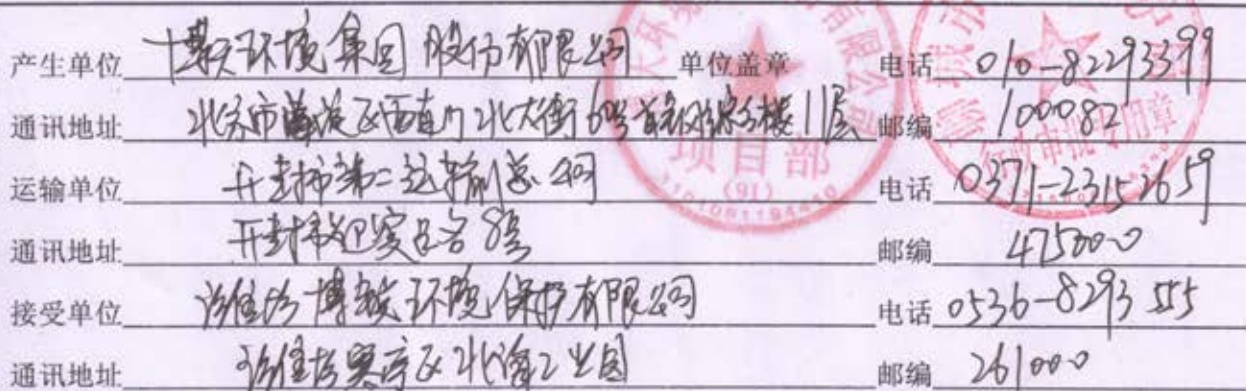 产生单位 博天环境集团股份有限公司 单位盖章 电话 010-82293399
通讯地址 北京市海淀区西直门北大街60号首钢综合楼11层 邮编 100082
运输单位 开封市第二运输总公司 电话 0371-23152659
通讯地址 开封市 8号 邮编 475000
接受单位 潍坊博锐环境保护有限公司 电话 0536-8293555
通讯地址 潍坊寒亭区北海工业园 邮编 261000
有限公司
项目部
(91)
1101081194410
行政审批专用章